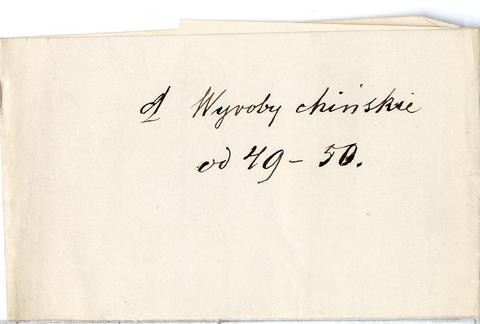 Wyroby chińskie
od 49 – 50.